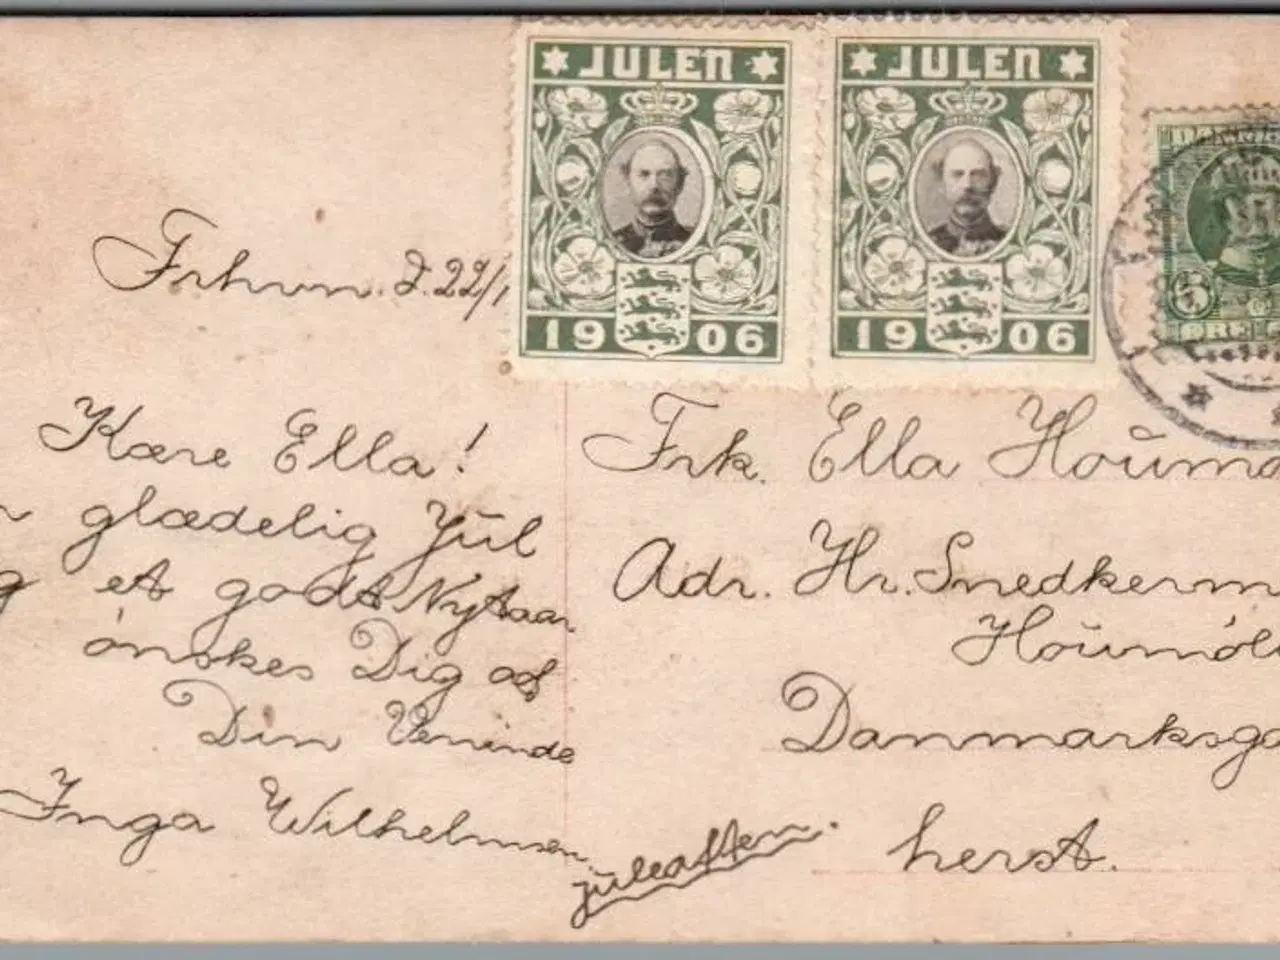 JULEN
1906
JULEN
1906
6
ØRE
Frhvn. d. 22/1
Kære Ella!
n glædelig Jul
g et godt Nytaar
ønskes Dig af
Din Veninde
Inga Wilhelmsen.
juleaften.
Frk. Ella Houmø
Adr. Hr. Snedkerm
Houmøl
Danmarksga
herst.